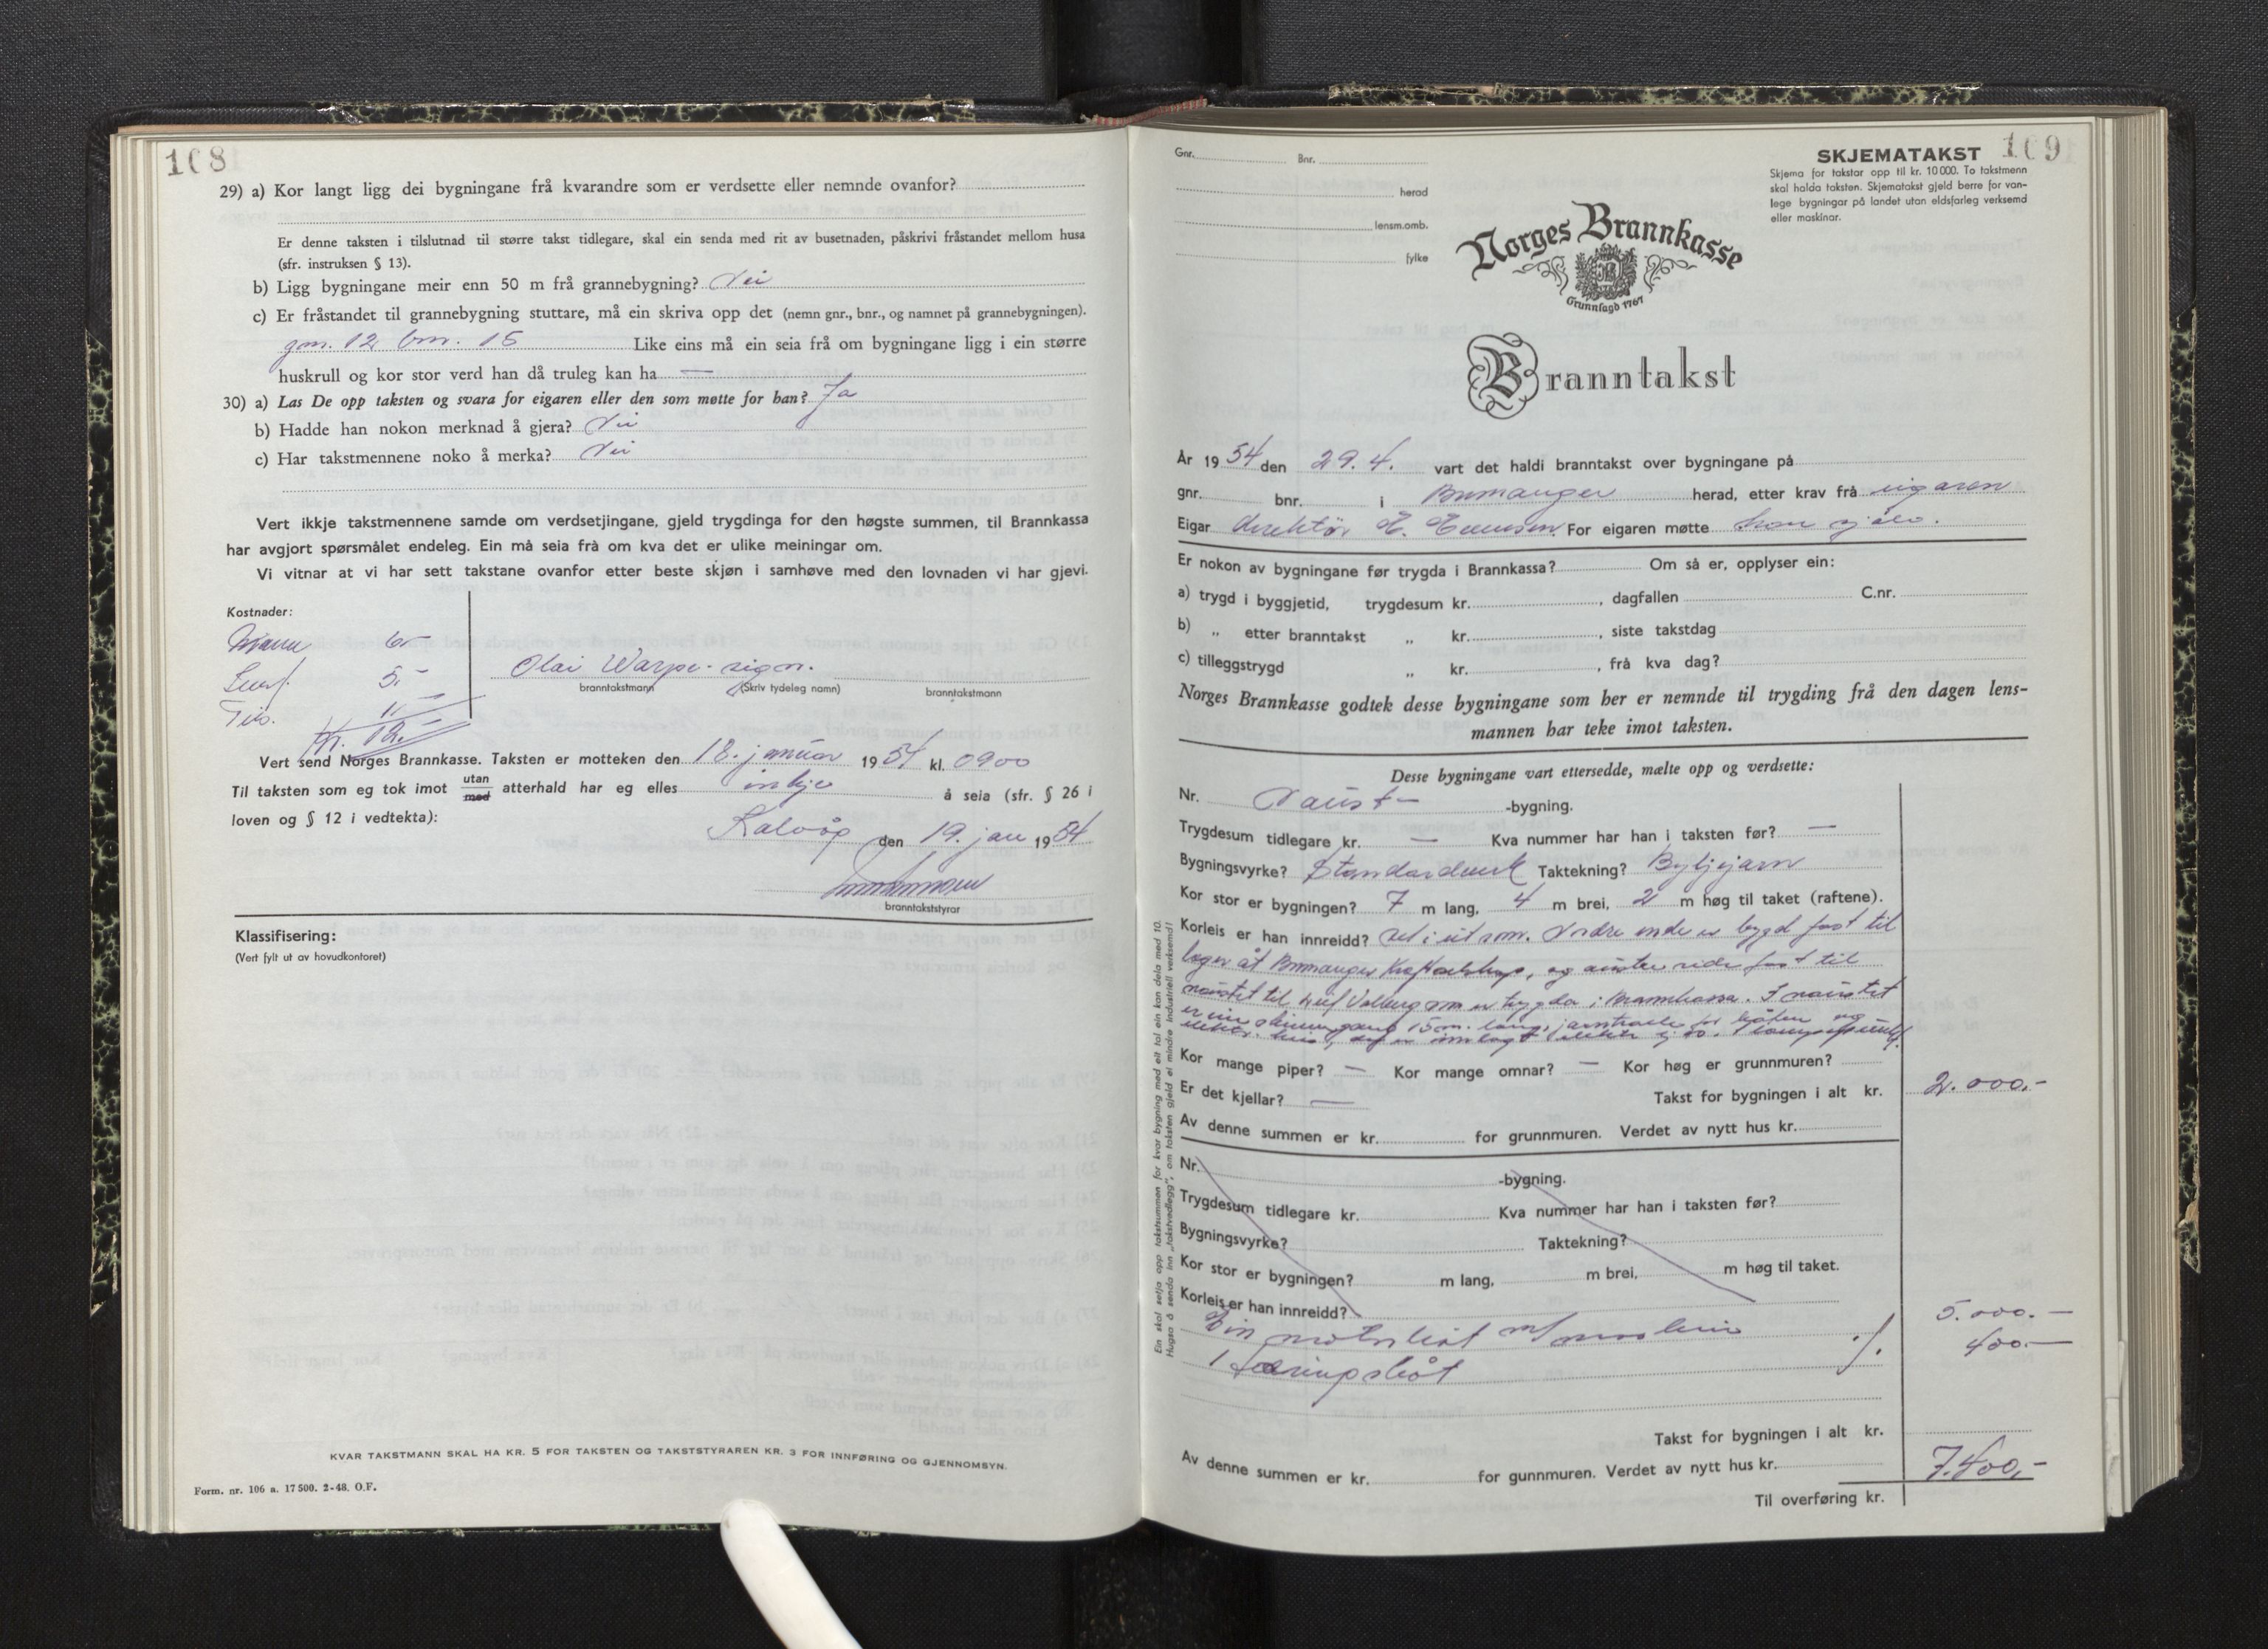 108
29) a) Kor langt ligg dei bygningane frå kvarandre som er verdsette eller nemnde ovanfor?
Er denne taksten i tilslutnad til større takst tidlegare, skal ein senda med rit av busetnaden, påskrivi fråstandet mellom husa
(sfr. instruksen § 13).
b) Ligg bygningane meir enn 50 m frå grannebygning? Nei
c) Er fråstandet til grannebygning stuttare, må ein skriva opp det (nemn gnr., bnr., og namnet på grannebygningen).
gnr. 12 bnr. 15 Like eins må ein seia frå om bygningane ligg i ein større
huskrull og kor stor verd han då truleg kan ha —
30) a) Las De opp taksten og svara for eigaren eller den som møtte for han? Ja
b) Hadde han nokon merknad å gjera? Nei
c) Har takstmennene noko å merka? Nei
Vert ikkje takstmennene samde om verdsetjingane, gjeld trygdinga for den høgste summen, til Brannkassa
har avgjort spørsmålet endeleg. Ein må seia frå om kva det er ulike meiningar om.
Vi vitnar at vi har sett takstane ovanfor etter beste skjøn i samhøve med den lovnaden vi har gjevi.
Kostnader:
6-
5.-
Olai Warpe. sign.
branntakstmann (Skriv tydeleg namn) branntakstmann
Kr. 12.-
Vert send Norges Brannkasse. Taksten er motteken den 18. januar 1954 kl. 0900
Til taksten som eg tok imot utan/med atterhald har eg elles inkje å seia (sfr. § 26 i
loven og § 12 i vedtekta):
Kalvåg den 19. jan 1954
branntakststyrar
Klassifisering:
(Vert fylt ut av hovudkontoret)
KVAR TAKSTMANN SKAL HA KR. 5 FOR TAKSTEN OG TAKSTSTYRAREN KR. 3 FOR INNFØRING OG GJENNOMSYN.
Form. nr. 106 a. 17 500. 2-48. O.F.
109
Gnr. Bnr.
herad
lensm.omb.
fylke
SKJEMATAKST
Skjema for takstar opp til kr. 10 000. To takstmenn
skal halda taksten. Skjematakst gjeld berre for van-
lege bygningar på landet utan eldsfarleg verksemd
eller maskinar.
Norges Brannkasse
Grunnlagd 1767
Branntakst
År 1954 den 29. 4. vart det haldi branntakst over bygningane på
gnr. bnr. i Bremanger herad, etter krav frå eigaren
Eigar direktør E. For eigaren møtte han sjølv.
Er nokon av bygningane før trygda i Brannkassa? Om så er, opplyser ein:
a) trygd i byggjetid, trygdesum kr. , dagfallen C.nr.
b) „ etter branntakst „ kr. , siste takstdag
c) tilleggstrygd „ kr. , frå kva dag?
Norges Brannkasse godtek desse bygningane som her er nemnde til trygding frå den dagen lens-
mannen har teke imot taksten.
Desse bygningane vart ettersedde, mælte opp og verdsette:
Nr. Naust- -bygning.
Trygdesum tidlegare kr. — Kva nummer har han i taksten før? —
Bygningsvyrke? Standardverk Taktekning? Bylgjejarn
Kor stor er bygningen? 7 m lang, 4 m brei, 2 m høg til taket (raftene).
Korleis er han innreidd? Alt i eit rom. Nordre ende er bygd fast til
lager åt Bremanger Kraftselskap, og austre side fast til
naustet til Leif Valberg som er trygda i Brannkassa. I naustet
Kor mange piper? — Kor mange omnar? — Kor høg er grunnmuren?
Er det kjellar? — Takst for bygningen i alt kr. 2.000,-
Av denne summen er kr. for grunnmuren. Verdet av nytt hus kr.
Nr. -bygning.
Trygdesum tidlegare kr. Kva nummer har han i taksten før?
Bygningsvyrke? Taktekning?
Kor stor er bygningen? m lang, m brei, m høg til taket.
Korleis er han innreidd?
Ein motorbåt m/maskin 5.000.-
1 færingsbåt 400.-
Takst for bygningen i alt kr.
Av denne summen er kr. for gunnmuren. Verdet av nytt hus kr.
7.400,-
Til overføring kr.
Ein skal setja opp takstsummen for kvar bygning med eit tal ein kan dela med 10.
Hugsa å senda inn „takstvedlegg", om taksten gjeld ei mindre industriell verksemd!